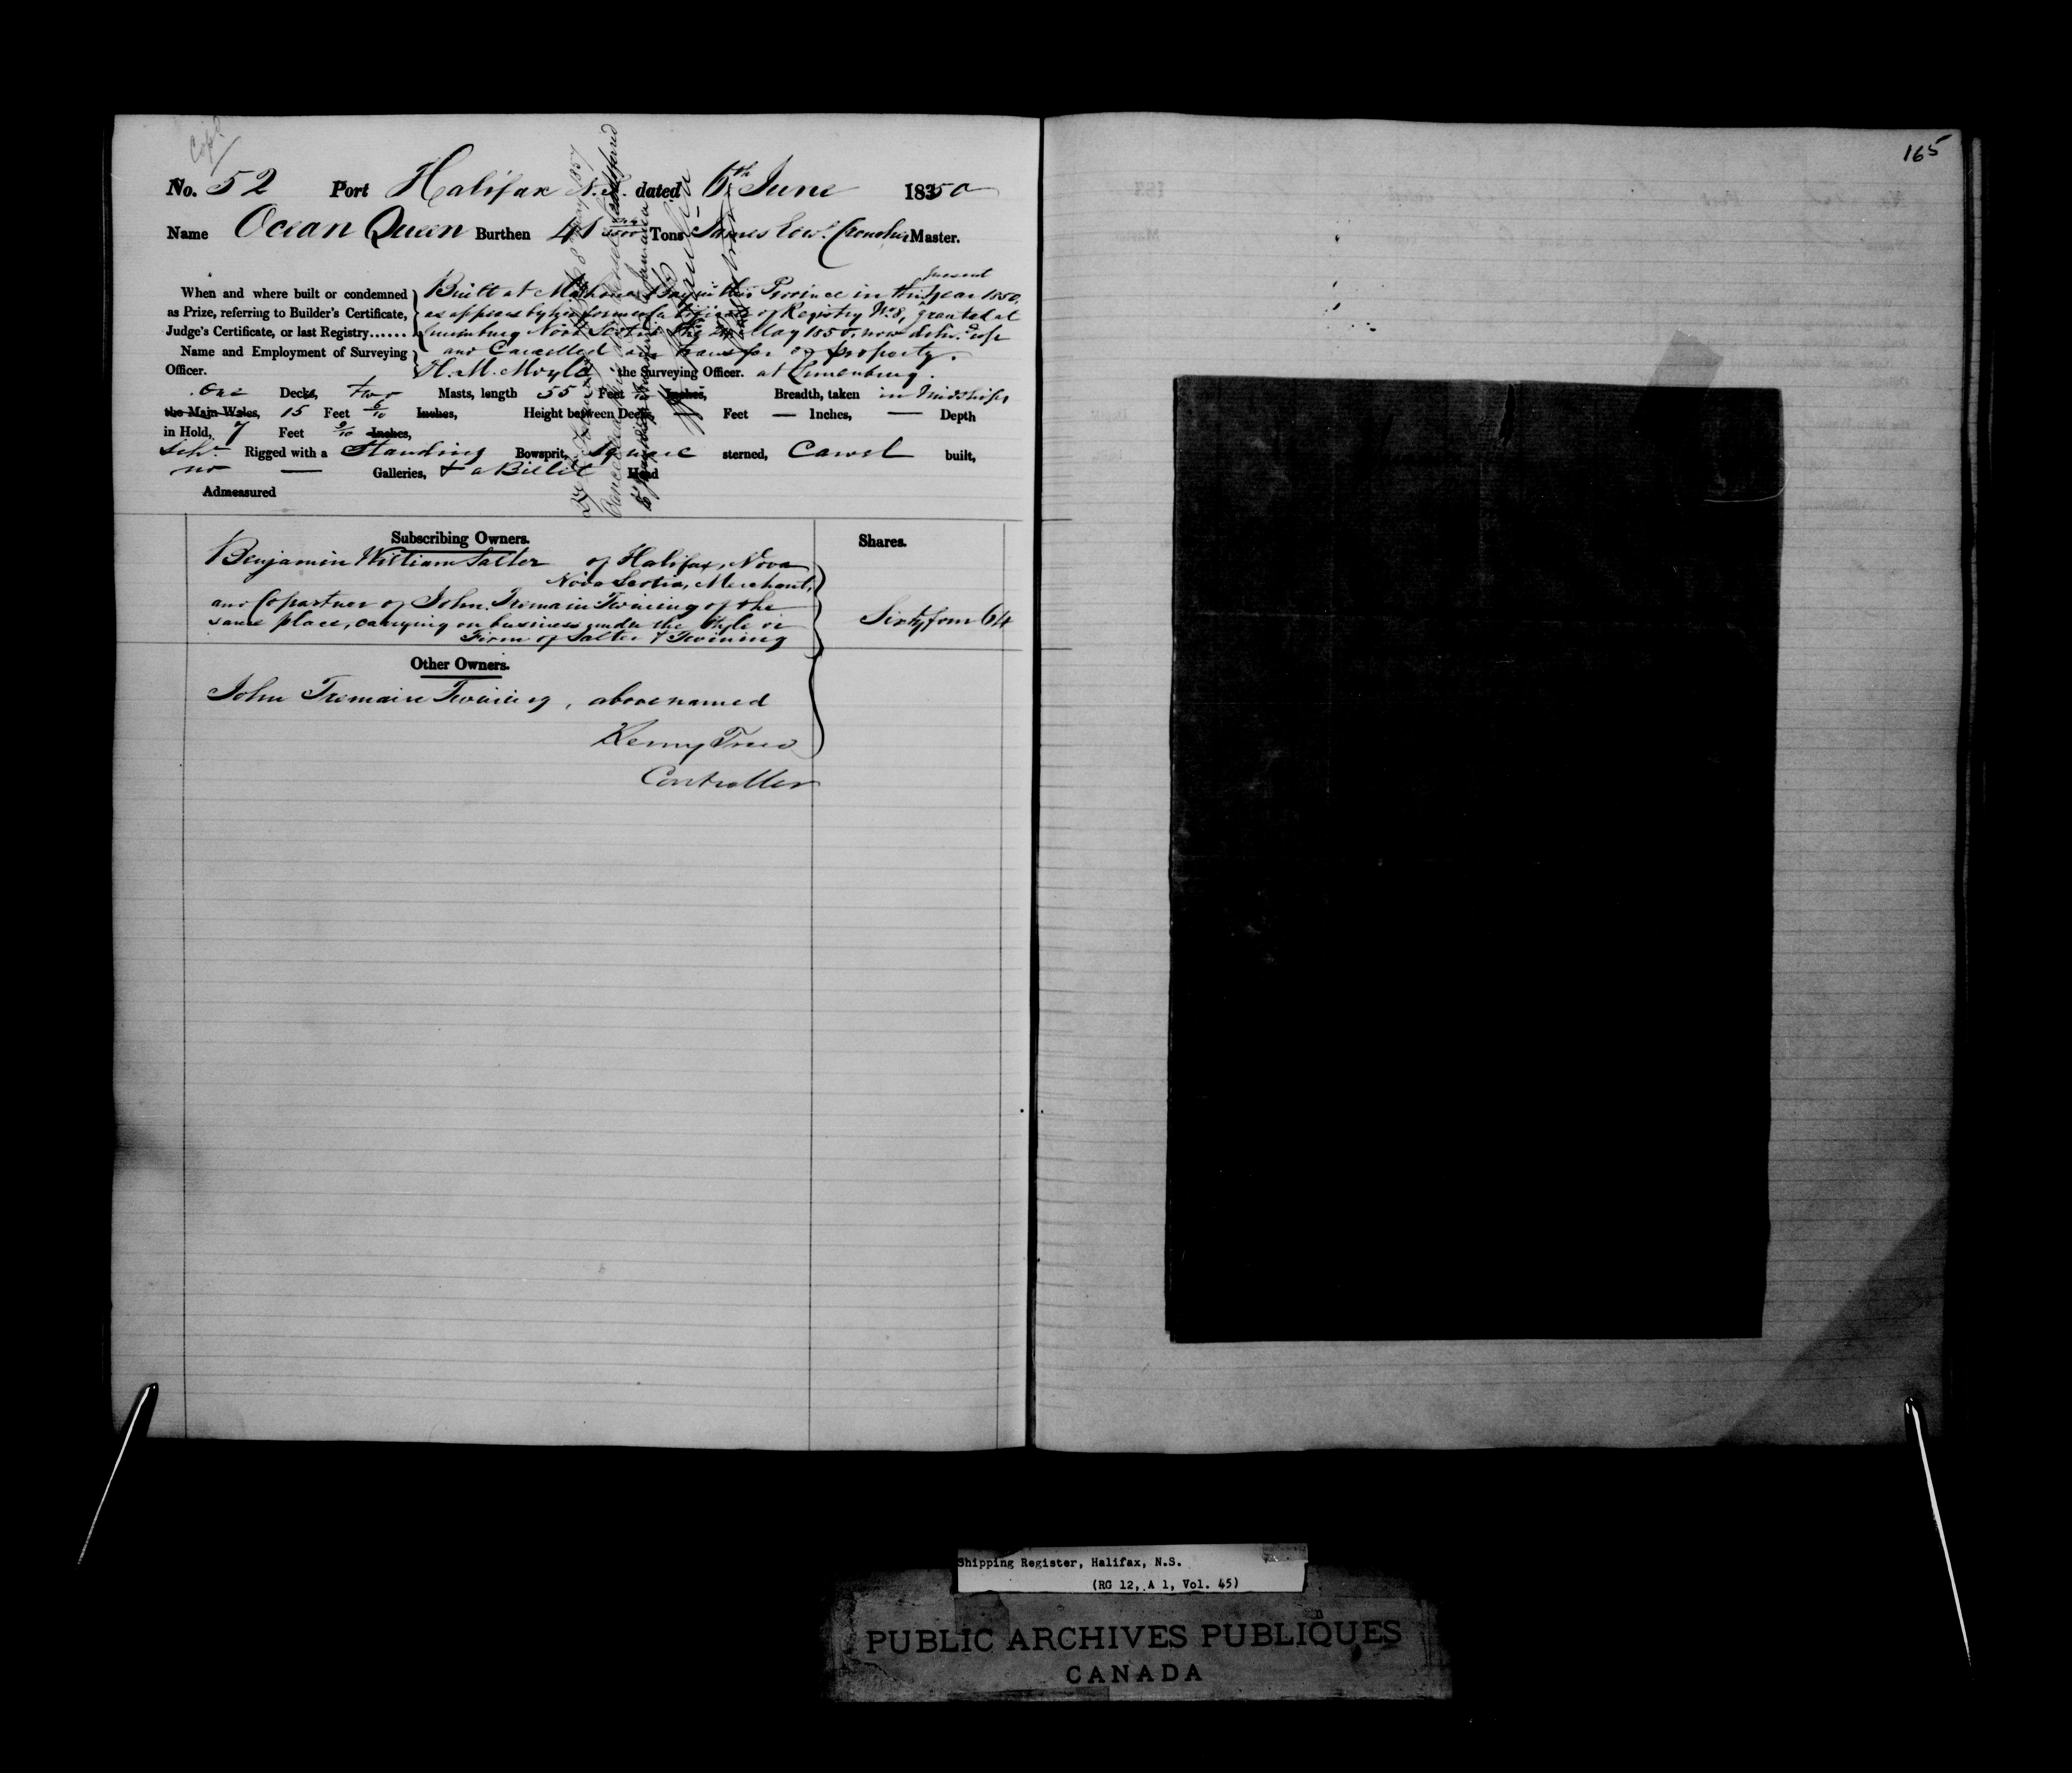 Copd
No. 52 Port Halifax N.S. dated 6th June 1850
Name Ocean Queen Burthen 41 Tons James Edwd. Croucher Master.
present
When and where built or condemned Built at Mahone Bay in this Province in the year 1850,
as Prize, referring to Builder's Certificate, as appears by her former Certificate of Registry No. 8, granted at
Judge's Certificate, or last Registry...... Lunenburg Nova Scotia May 1850, now delivd. up
Name and Employment of Surveying and Cancelled on transfer of property.
Officer. H. M. Moyle the Surveying Officer. at Lunenburg.
One Decks, two Masts, length 55 Feet Inches, Breadth, taken in Midships
the Main Wales, 15 Feet 6/10 Inches, Height between Decks, — Feet — Inches, — Depth
in Hold, 7 Feet 9/10 Inches,
Schr. Rigged with a Standing Bowsprit, Square sterned, Carvel built,
no — Galleries, & a Billet Head
Admeasured
Subscribing Owners.
Shares.
Benjamin William Salter of Halifax, Nova
Nova Scotia, Merchant,
and Copartner of John Tremain Twining of the
same place, carrying on business under the Style or
Firm of Salter & Twining
Sixty four 64
Other Owners.
John Tremain Twining, above named
Controller
165
Shipping Register, Halifax, N.S.
(RG 12, A 1, Vol. 45)
PUBLIC ARCHIVES PUBLIQUES
CANADA